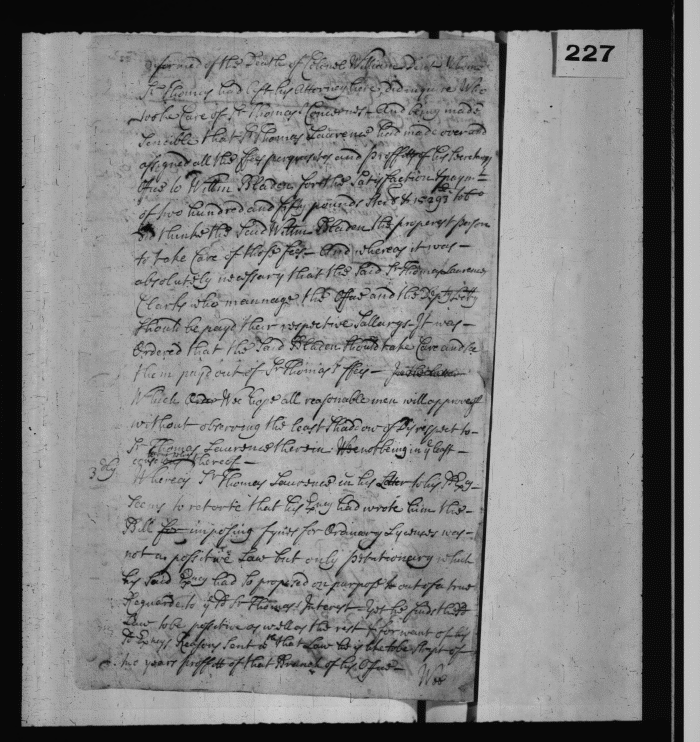 227
formed of the Death of Colonel William
Sr. Thomas had left his Attorney here, did enquire Who
tooke Care of Sr. Thomas's Concernes And being made
Sencible that Sr Thomas Laurence had made over and
assigned all the ffees perquisites and proffitts of his Secretarys
Office to Willm Bladen for the Satisfaction & paymt.
of two hundred and fifty pounds Sterl &
thinke the Said Willm Bladen the properest person
to take Care of those ffees And whereas it was
absolutely necessary that the said Sr. Thomas Laurence
Clarks who mannage the Office and the
Should be payd their respective Sallarys It was
Ordered that the Said Bladen should take Care and
them payd out of Sr Thomas's ffees
Which Wee hope all reasonable men will approve of
without observing the least Shaddow of disrespect to
Sr. Thomas Laurence therein We not being in ye least
thereof
3dly Whereas Sr Thomas Laurence in his Letter to his
Seems to retorte that his Excy had wrote him the
Bill for imposing fynes for Ordinary Lycenses was
not a possitive Law but only which
his Said Excy had So proposed on purpose to out of a true
Reguarde to ye Sd Sr Thomas's Interest Yet he finds the
Law to be positive as well as the rest & for want of his
Sd Excys Reasons Sent wth that Law he is like to be Stopt of
two years proffitt of that Branch of his Office
Wee